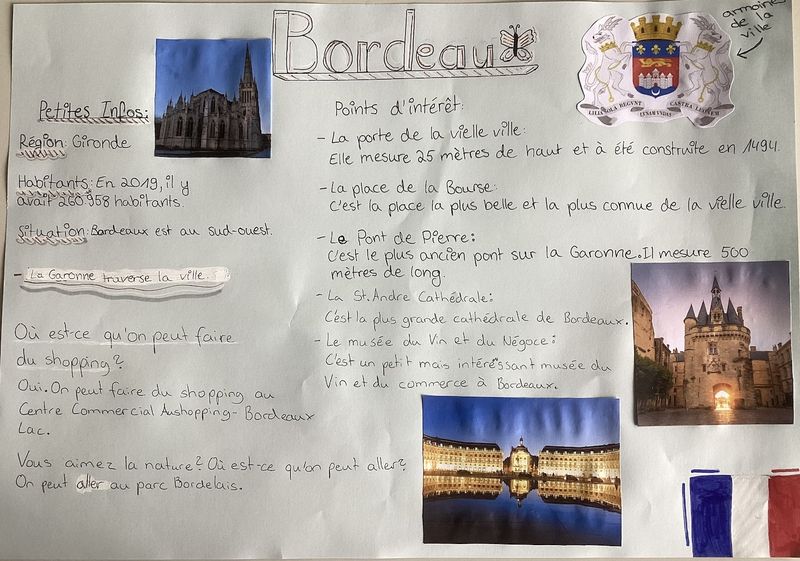 Bordeaux
armoiries
de la
ville
LILIA SOLA REGUNT
LUNAM UNDAS
CASTRA LEONEM
Petites Infos:
Région: Gironde
Habitants: En 2019, il y
avait 260 958 habitants.
Situation: Bordeaux est au sud-ouest.
- La Garonne traverse la ville.
Où est-ce qu'on peut faire
du shopping?
Oui. On peut faire du shopping au
Centre Commercial Aushopping-Bordeaux
Lac.
Vous aimez la nature? Où est-ce qu'on peut aller?
On peut aller au parc Bordelais.
Points d'intérêt:
- La porte de la vielle ville:
Elle mesure 25 mètres de haut et à été construite en 1494.
- La place de la Bourse:
C'est la place la plus belle et la plus connue de la vielle ville.
- Le Pont de Pierre:
C'est le plus ancien pont sur la Garonne. Il mesure 500
mètres de long.
- La St. Andre Cathédrale:
C'est la plus grande cathédrale de Bordeaux.
- Le musée du Vin et du Négoce:
C'est un petit mais intéressant musée du
Vin et du commerce à Bordeaux.